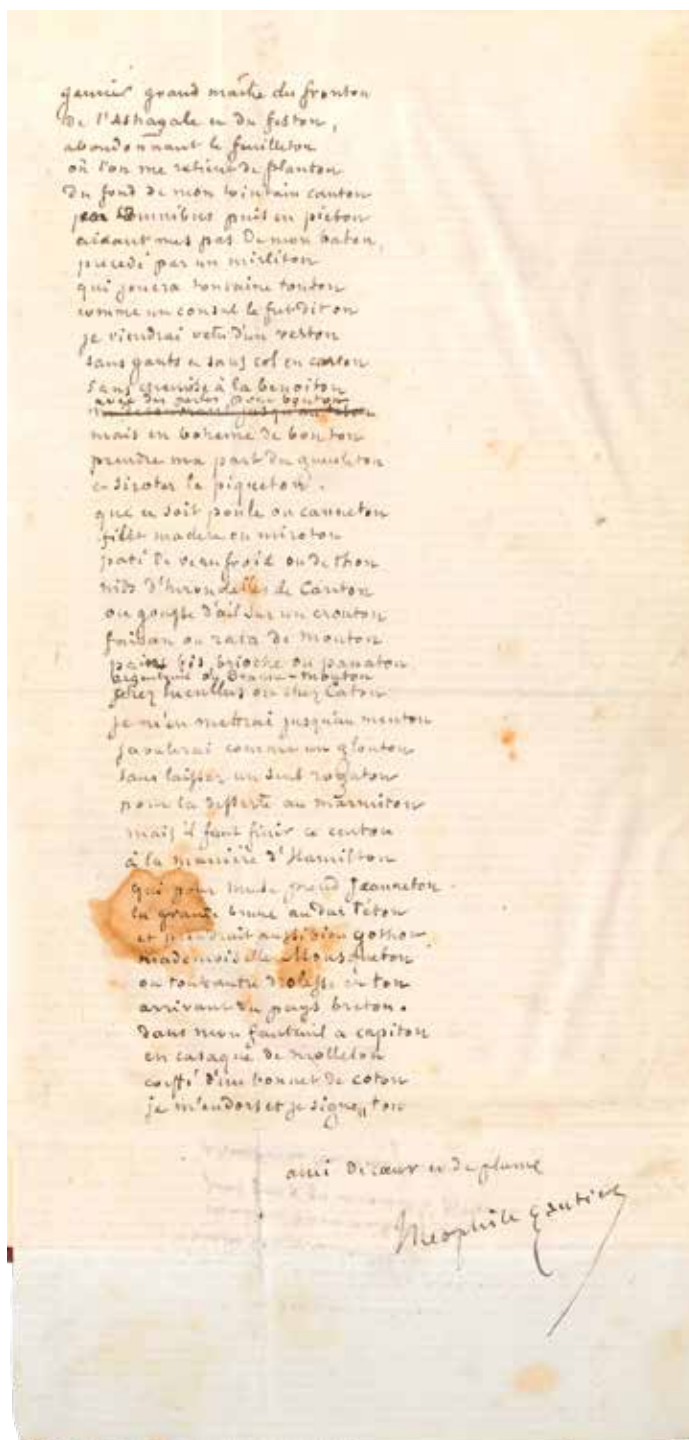 garnier grand maitre du fronton
de l'astragale et du feston,
abandonnant le feuilleton
où l'on me retient de planton
du fond de mon lointain canton
par omnibus puis en pieton
aidant mes pas de mon baton,
precedé par un mirliton
qui jouera tontaine tonton
comme un consul le fut dit on
je viendrai vetu d'un veston
sans gants et sans col en carton
sans chemise à la benoiton
avec des perles pour bouton
mais en boheme de bon ton
prendre ma part du gueuleton
et siroter le piqueton.
que ce soit poule ou canneton
filet madere ou miroton
paté de veau froid ou de thon
nids d'hirondelles de Canton
ou gousse d'ail sur un crouton
faisan ou rata de mouton
pain bis, brioche ou panaton
argenteuil ou Branne-mouton
chez lucullus ou chez Caton
je m'en mettrai jusqu'au menton
j'avalerai comme un glouton
sans laisser un seul rogaton
pour la desserte au marmiton
mais il faut finir ce centon
à la manière d'Hamilton
qui pour muse prend Jeanneton
la grande brune au dur teton
et prendrait aussi bien gothon
mademoiselle Mousqueton
ou toute autre drolesse en ton
arrivant du pays breton.
dans mon fauteuil a capiton
en casaque de molleton
coiffé d'un bonnet de coton
je m'endors et je signe,, ton
ami de cœur et de plume
Theophile gautier